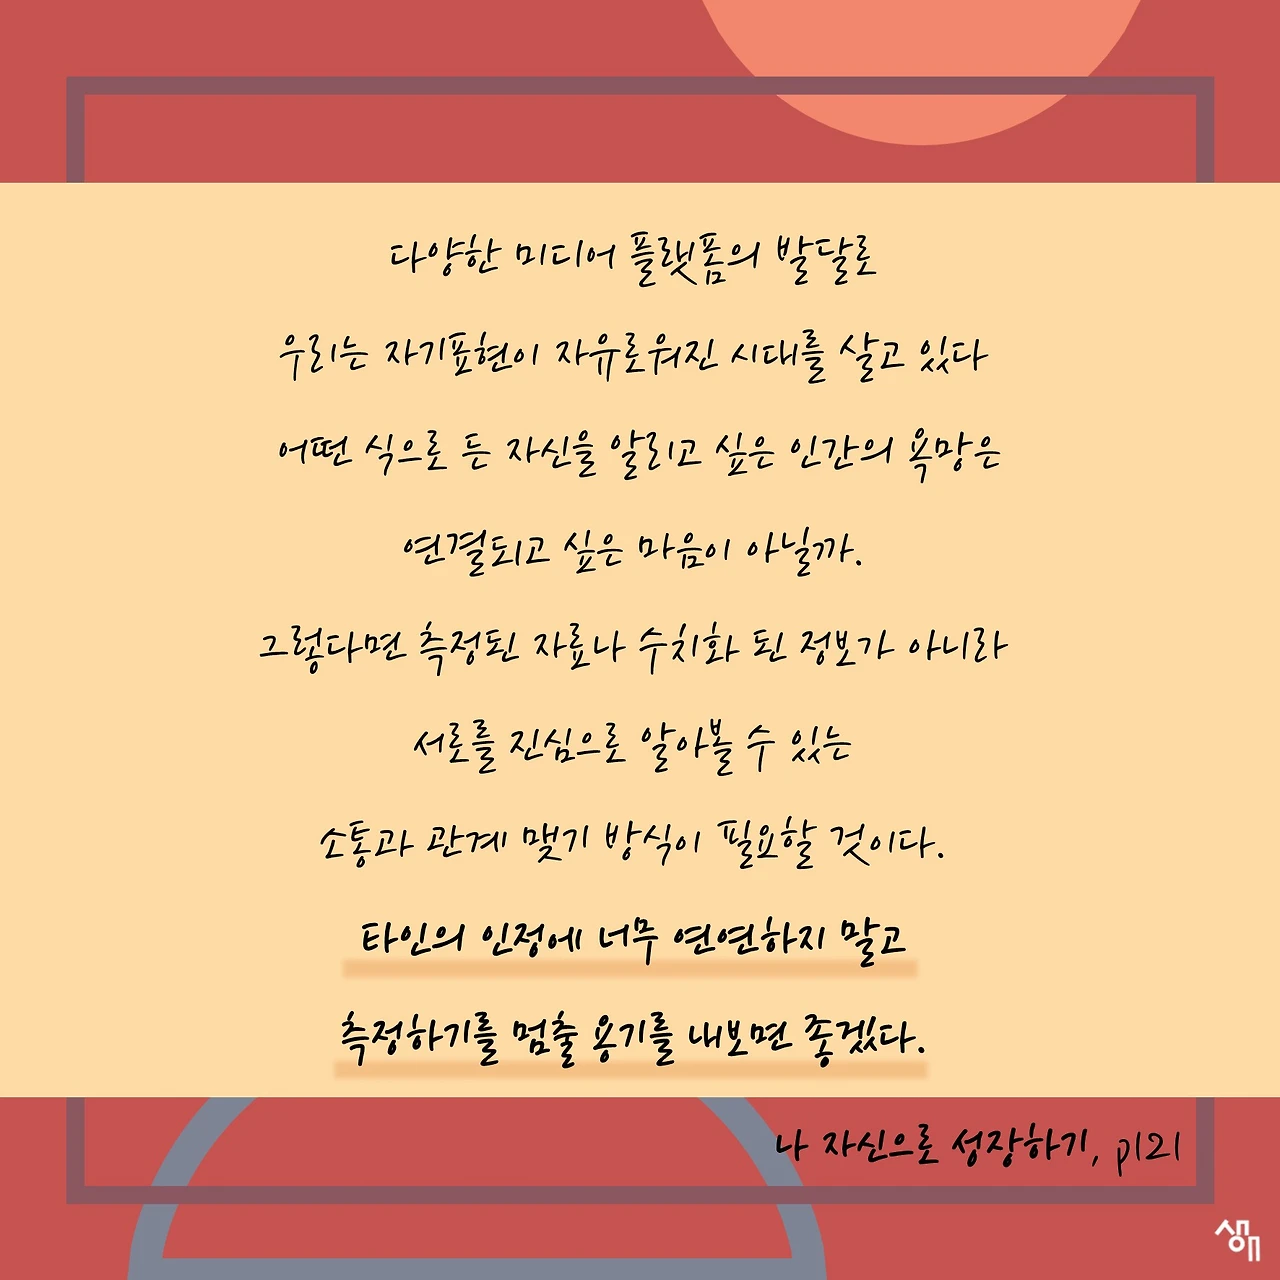 다양한 미디어 플랫폼의 발달로
우리는 자기표현이 자유로워진 시대를 살고 있다
어떤 식으로 든 자신을 알리고 싶은 인간의 욕망은
연결되고 싶은 마음이 아닐까.
그렇다면 측정된 자료나 수치화 된 정보가 아니라
서로를 진심으로 알아볼 수 있는
소통과 관계 맺기 방식이 필요할 것이다.
타인의 인정에 너무 연연하지 말고
측정하기를 멈출 용기를 내보면 좋겠다.
나 자신으로 성장하기, p121
생애